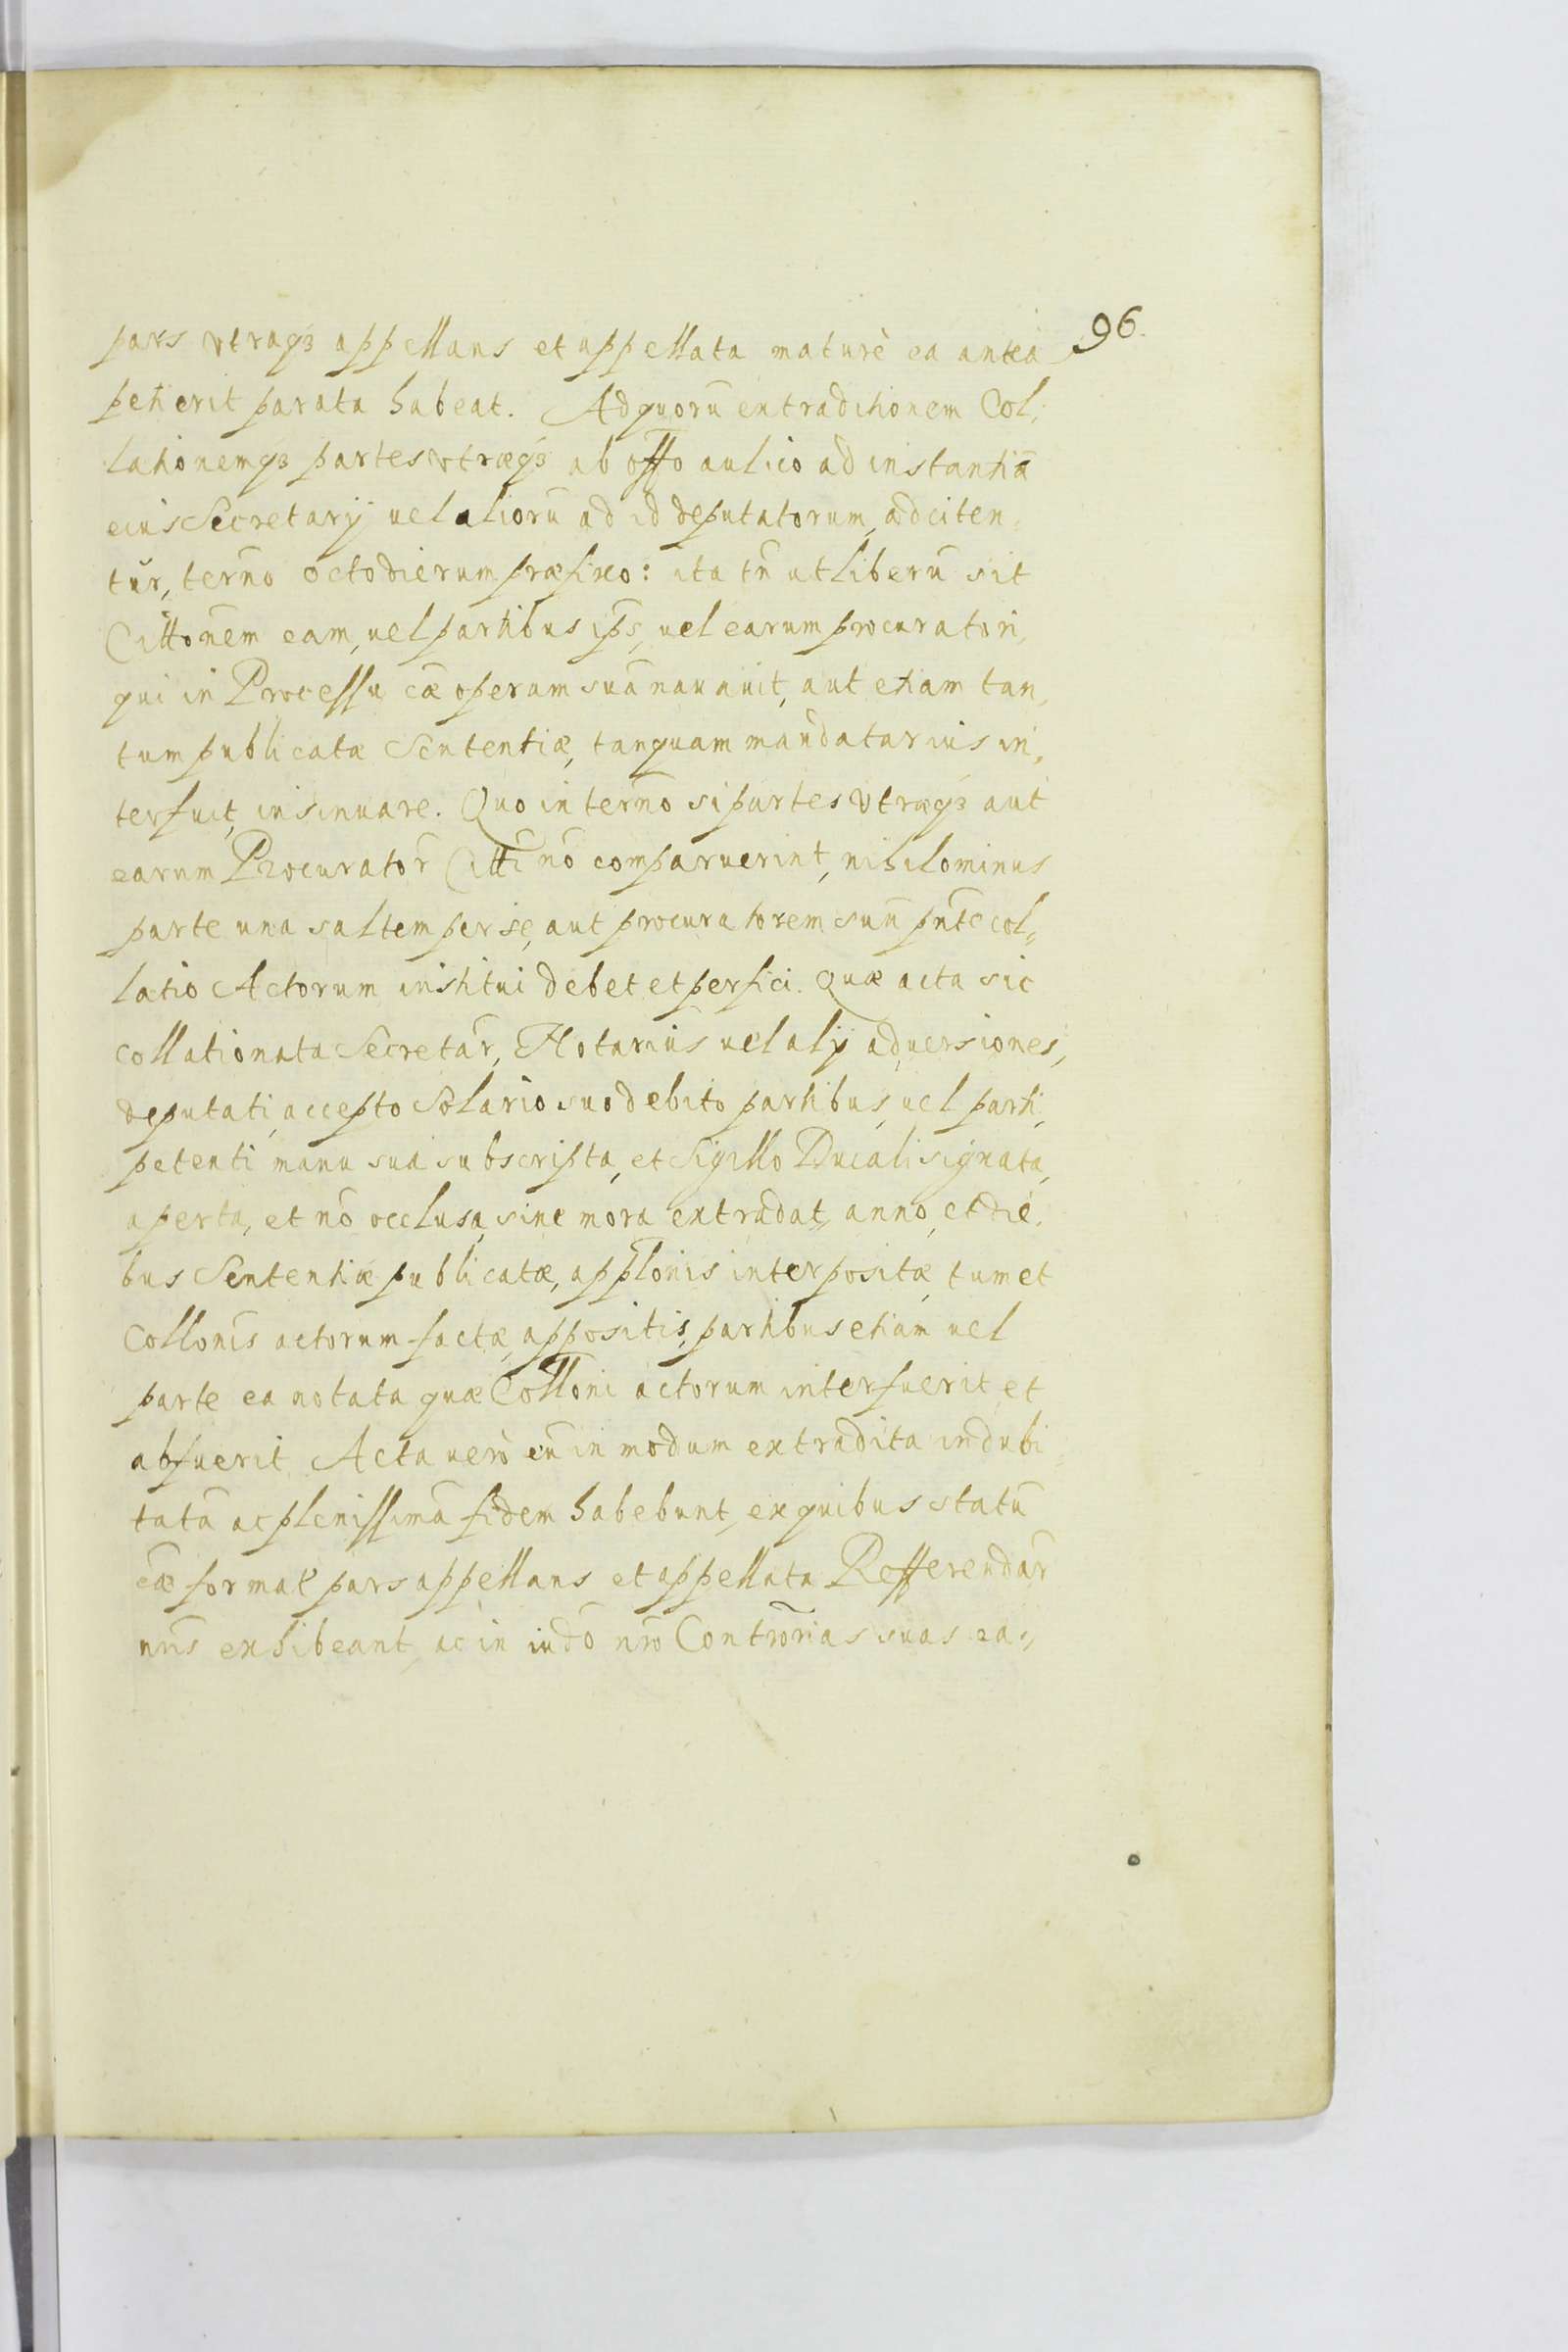 96.
pars vtraqȝ appellans et appellata maturè ea anteà
petierit parata habeat. Ad quorū extraditionem Col,
lationemqȝ partes vtræqȝ ab offo aulico ad instantiā
eius Secretarij uel aliorū ad id deputatorum, adciten„
tur, terno octo dierum præfixo: ita tn̄ ut liberū sit
Cittonem eam, uel partibus ips̄, uel earum procuratori,
qui in Processu cæ operam suā nauauit, aut etiam tan,
tum publicatæ Sententiæ, tanquam mandatarius in,
terfuit, insinuare. Quo in terno si partes vtræqȝ aut
earum Procurator Citti nō comparuerint, nihilominus
parte una saltem per se, aut procuratorem suū pn̄te col„
latio Actorum institui debet et perfici. Quæ acta sic
collationata Secretar, Notarius uel alij ad uersiones,
deputati, accepto Solario suo debito partibus, uel parti,
petenti manu sua subscripta, et Sigillo Ducali signata,
aperta, et nō occlusa, sine mora extradat, anno, et die,
bus Sententiæ publicatæ, applonis interpositæ, tum et
Collonis actorum factæ, appositis, partibus etiam uel
parte ea notata quæ Colloni actorum interfuerit, et
abfuerit. Acta uerò eū in modum extradita indubi„
tatā ac plenissimā fidem habebunt, ex quibus statū
cæ format pars appellans et appellata Refferendar
nris exhibeant, ac in iudō nrō Controrias suas ea„